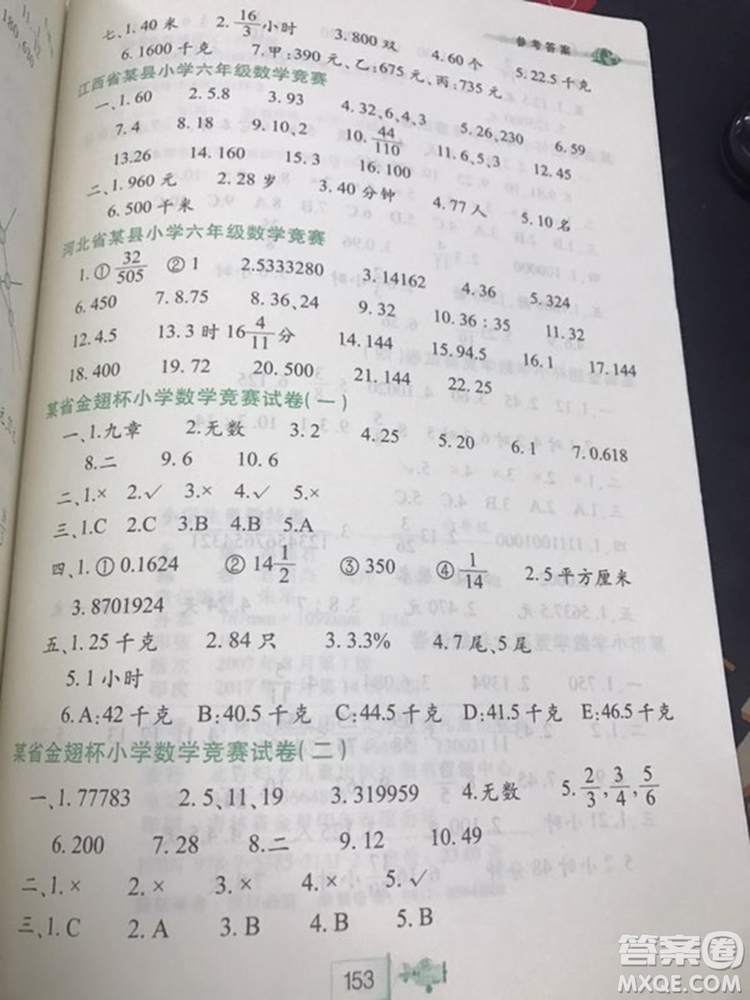 参考答案
七、1.40 米 2.16/3小时 3.800 双 4.60 个 5.22.5 千克
6.1600 千克 7.甲:390 元、乙:675 元、丙:735 元
江西省某县小学六年级数学竞赛
一、1.60 2.5.8 3.93 4.32、6、4、3 5.26、230 6.59
7.4 8.18 9.10、2 10.44/110 11.6、5、3 12.45
13.26 14.160 15.3 16.100
二、1.960 元 2.28 岁 3.40 分钟 4.77 人 5.10 名
6.500 千米
河北省某县小学六年级数学竞赛
1.①32/505 ②1 2.5333280 3.14162 4.36 5.324
6.450 7.8.75 8.36、24 9.32 10.36:35 11.32
12.4.5 13.3 时 16 4/11 分 14.14 15.94.5 16.1 17.144
18.400 19.72 20.500 21.144 22.25
某省金翅杯小学数学竞赛试卷(一)
一、1.九章 2.无数 3.2 4.25 5.20 6.1 7.0.618
8.二 9.6 10.6
二、1.× 2.√ 3.× 4.√ 5.×
三、1.C 2.C 3.B 4.B 5.A
四、1.①0.1624 ②14 1/2 ③350 ④1/14 2.5 平方厘米
3.8701924
五、1.25 千克 2.84 只 3.3.3% 4.7 尾、5 尾
5.1 小时
6.A:42 千克 B:40.5 千克 C:44.5 千克 D:41.5 千克 E:46.5 千克
某省金翅杯小学数学竞赛试卷(二)
一、1.77783 2.5、11、19 3.319959 4.无数 5.2/3、3/4、5/6
6.200 7.28 8.二 9.12 10.49
二、1.× 2.× 3.× 4.× 5.√
三、1.C 2.A 3.B 4.B 5.B
153
答案卷
MXQE.COM